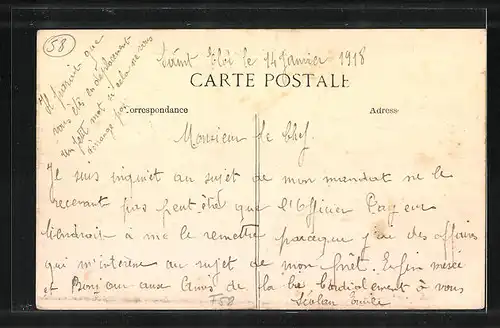 58
Saint Eloi le 14 Janvier 1918
Il parait que
vous êtes en déplacement
un petit mot si cela ne vous
dérange pas
CARTE POSTALE
Correspondance
Adresse
Monsieur le Chef.
Je suis inquiet au sujet de mon mandat ne le
recevant pas peut être que l'Officier Payeur
tiendrait à me le remettre parceque j'ai des affaires
qui m'intéresse au sujet de mon prêt. Enfin merci
et Bonjour aux Amis de la Cie Cordialement à vous
758